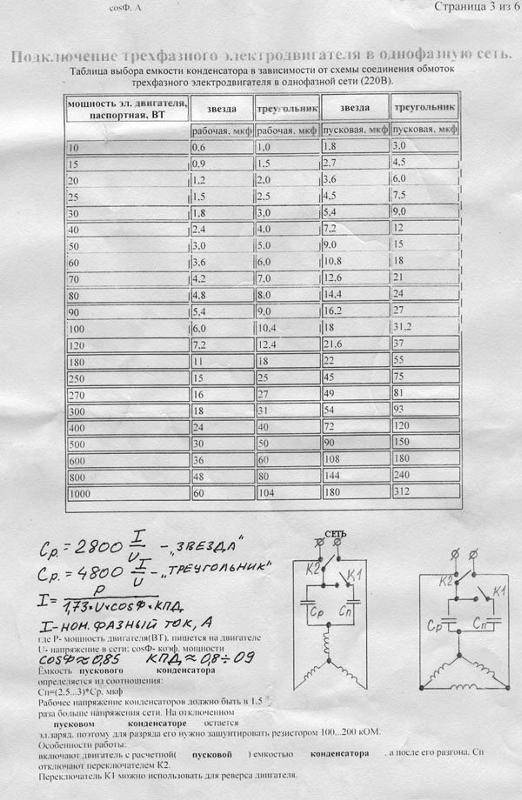 cosФ. А
Страница 3 из 6
Подключение трехфазного электродвигателя в однофазную сеть.
Таблица выбора емкости конденсатора в зависимости от схемы соединения обмоток
трехфазного электродвигателя в однофазной сети (220В).
мощность эл. двигателя, паспортная, ВТ звезда треугольник звезда треугольник
рабочая, мкф рабочая, мкф пусковая, мкф пусковая, мкф
10 0,6 1,0 1,8 3,0
15 0,9 1,5 2,7 4,5
20 1,2 2,0 3,6 6,0
25 1,5 2,5 4,5 7,5
30 1,8 3,0 5,4 9,0
40 2,4 4,0 7,2 12
50 3,0 5,0 9,0 15
60 3,6 6,0 10,8 18
70 4,2 7,0 12,6 21
80 4,8 8,0 14,4 24
90 5,4 9,0 16,2 27
100 6,0 10,4 18 31,2
120 7,2 12,4 21,6 37
180 11 18 22 55
250 15 25 45 75
270 16 27 49 81
300 18 31 54 93
400 24 40 72 120
500 30 50 90 150
600 36 60 108 180
800 48 80 144 240
1000 60 104 180 312
Ср.=2800 I/U - „ЗВЕЗДА"
Ср.=4800 I/U - „ТРЕУГОЛЬНИК"
I= P/1,73•U×cosФ•КПД
I-НОМ. ФАЗНЫЙ ТОК, А
где P- мощность двигателя(ВТ). пишется на двигателе
U- напряжение в сети: cosФ- коэф. мощности
cosФ≈0,85 КПД≈0,8÷09
Ёмкость пускового конденсатора
определяется из соотношения:
Сп=(2.5...3)*Ср. мкф
Рабочее напряжение конденсаторов должно быть в 1.5
раза больше напряжения сети. На отключенном
пусковом конденсаторе остается
эл.заряд. поэтому для разряда его нужно зашунтировать резистором 100...200 кОМ.
Особенности работы:
включают двигатель с расчетной( пусковой ) емкостью конденсатора . а после его разгона. Сп
отключают переключателем К2.
Переключатель К1 можно использовать для реверса двигателя.
СЕТЬ
К2
К1
Ср
Сп
К2
К1
Ср
Сп